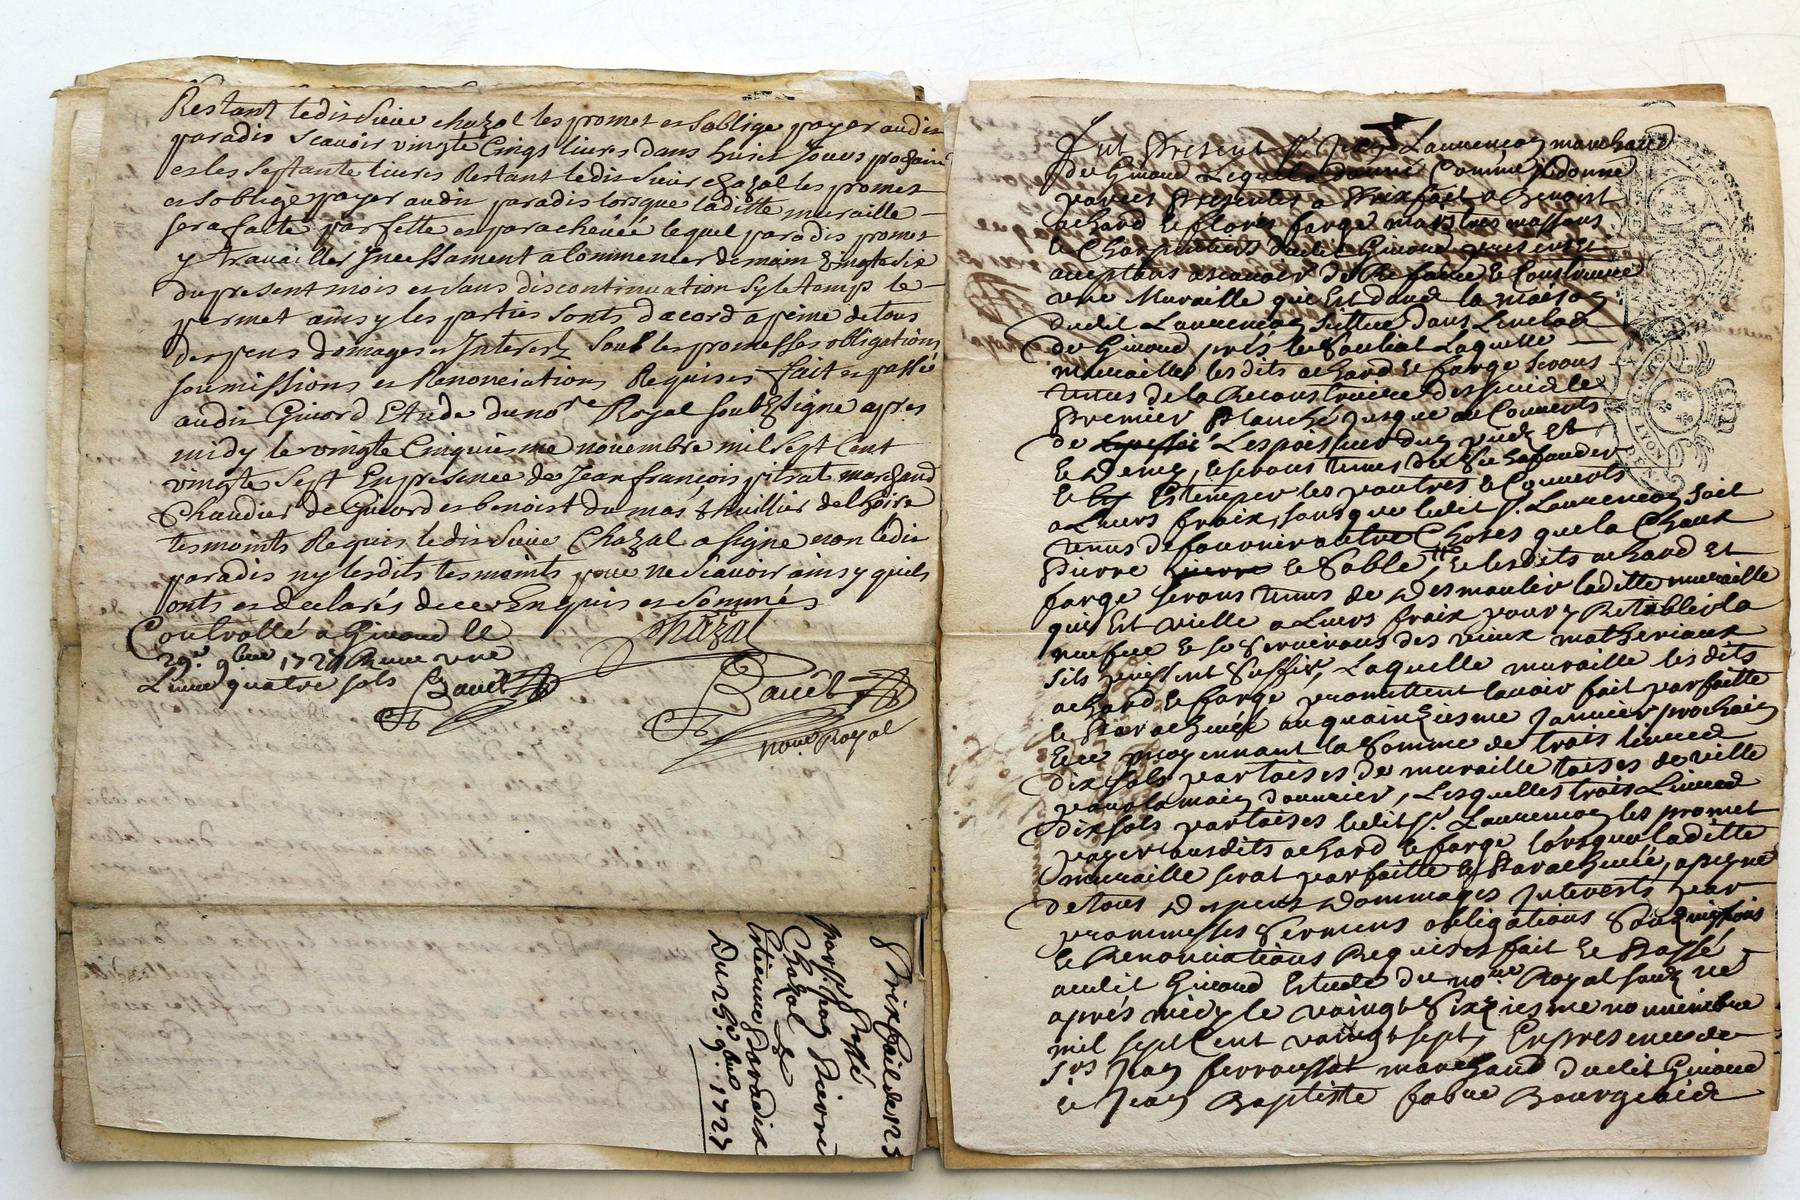 Restant ledit Sieur chazal les promet et soblige payer audit
paradis scavoir vingte Cinqs livres dans huict Jours prochain
et les septante livres Restant ledit sieur chazal les promet
et soblige payer audit paradis lorsque laditte muraille
sera faite parfette et parachevée lequel paradis promet
y travailler Jncessament a Commencer demain vingte six
du present mois et sans discontinuation sy le temps le
permet ainsy les parties sonts dacord a peine de tous
despens domages et Interest soub les promesses obligations
soumissions et Renonciations Requises fait et passé
audit Givord Etude du nore Royal soubsigne apres
midy le vingte Cinquiesme novembre mil sept Cent
vingte sept En presence de Jean francois pitrat marchand
Chaudier de Givord et benoist dumas thuillier de
tesmoints Requis ledit sieur Chazal a signe non ledit
paradis ny lesdits tesmoints pour ne scavoir ainsy quils
onts et declarés de ce Enquis et sommés
Chazal
Controllé a Givord le
29e 9bre 1727 Receu une
Livre quatre sols
nore Royal
Prixfait de 125
par sr
Chazal a
Etienne Paradix
Du 25e 9bre 1727
fut Present sr Jean Laurencon marchand
de Givord Lequel a donné Comme Jl donne
par ces Presentes a Prixfait a Benoist
achard et flores farge maistres massons
et Charpentiers dudit Givord
acceptans ascavoir de Refaire et Construire
une Muraille qui Est dans la maison
dudit Laurencon sittue dans
de Givord près le Laquelle
muraille lesdits achard et farge serons
tenus de la Reconstruire despuis le
Premier Planché Jusque au Couverts
de Lespoisseur dun pied Et
et Demy, et serons tenus de
et Estemper les poutres et Couverts
a Leurs fraix, sans que ledit sr Laurencon soit
tenus de fournir autre Choses que la Chaux
Pierre et Sable, et lesdits achard Et
farge serons tenus de Desmoulir laditte muraille
qui Est vielle a Leurs fraix pour y Retablir la
neufue et se serviront des vieux matheriaux
sils peuvent suffir, Laquelle muraille lesdits
achard et farge promettent lavoir fait parfaitte
et Parachevée au quainziesme Janvier prochain
Et ce moyennant la somme de trois livres
dix sols par toises de muraille toises de ville
pour la main douvrier, Lesquelles trois Livres
dix sols par toises ledit sr Laurencon les promet
payer ausdits achard et farge lorsque laditte
muraille serat parfaitte et Parachevée, a peyne
de tous Despens Dommages Interests par
prommesses sermens obligations soumissions
et Renonciations Requises fait et Passé
audit Givord Estude du nore Royal
après midy le vaingt sixziesme novembre
mil sept Cent vaingt sept, En presence de
srs Jean ferroussat marchand dudit Givord
et Jean Baptiste fabue Bourgeois